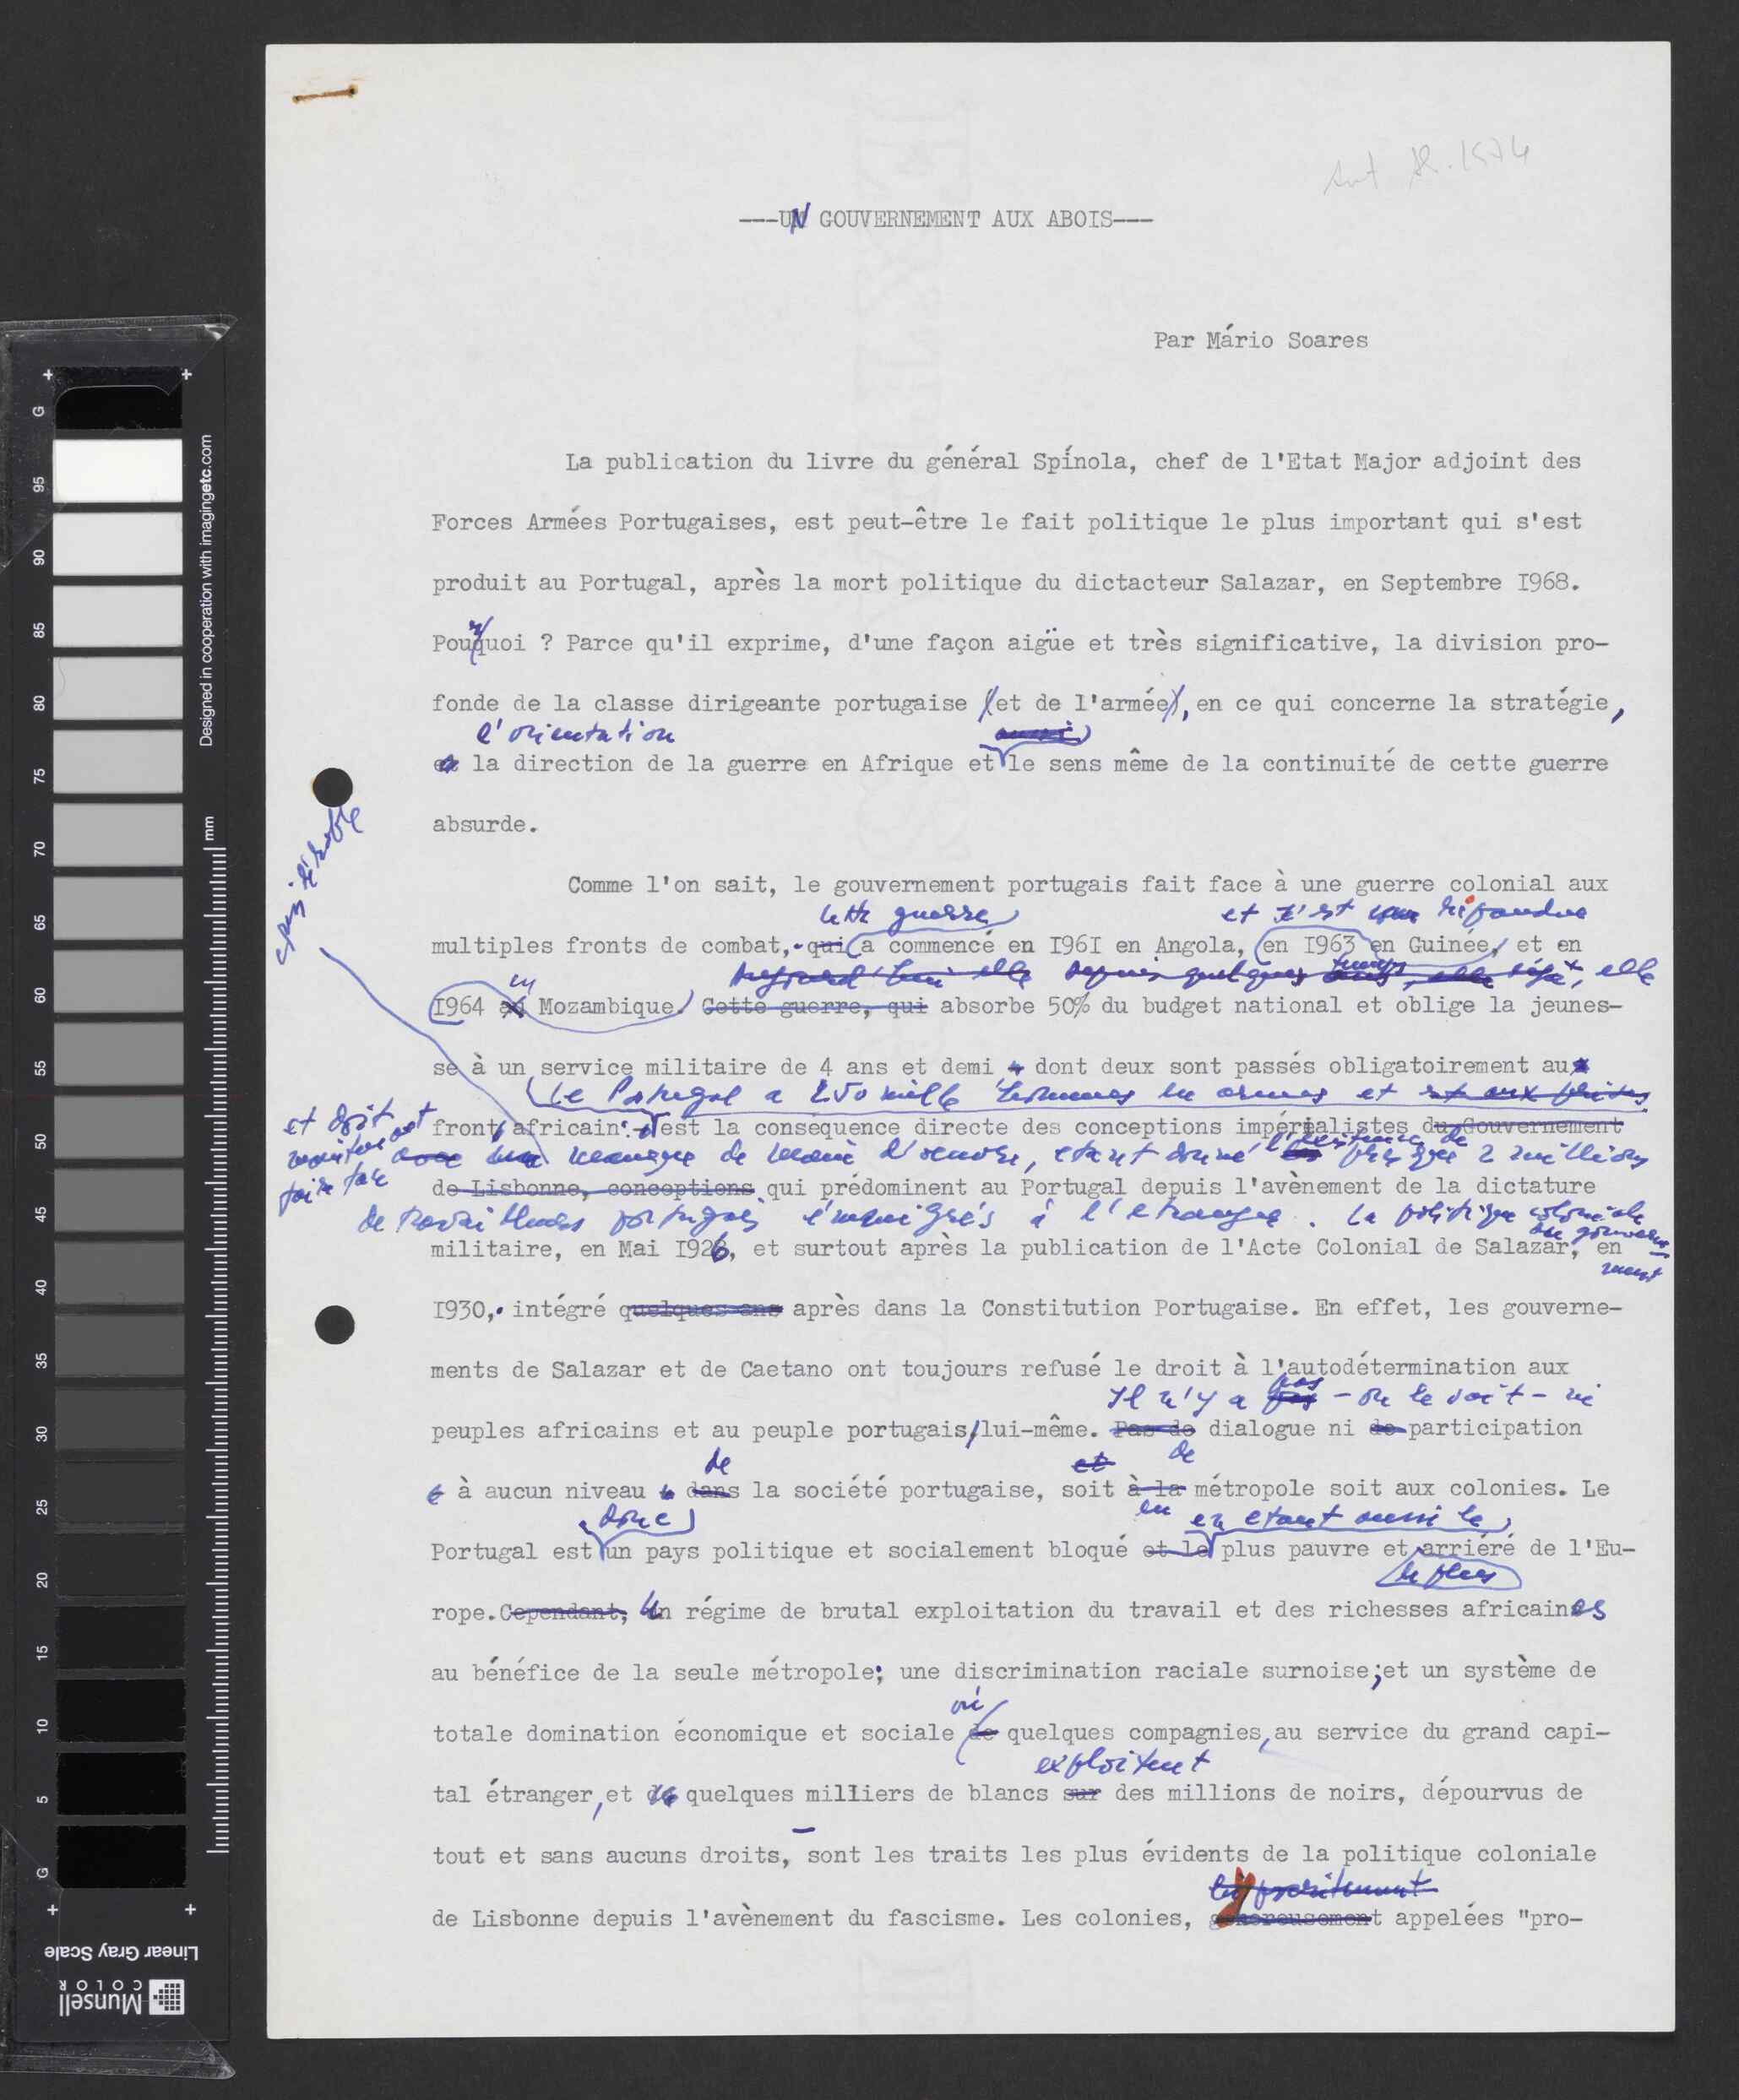 ---UN GOUVERNEMENT AUX ABOIS---
Par Mário Soares
La publication du livre du général Spínola, chef de l'Etat Major adjoint des
Forces Armées Portugaises, est peut-être le fait politique le plus important qui s'est
produit au Portugal, après la mort politique du dictacteur Salazar, en Septembre I968.
Pourquoi ? Parce qu'il exprime, d'une façon aigüe et très significative, la division pro-
fonde de la classe dirigeante portugaise (et de l'armée), en ce qui concerne la stratégie,
l'orientation
la direction de la guerre en Afrique et le sens même de la continuité de cette guerre
absurde.
Comme l'on sait, le gouvernement portugais fait face à une guerre colonial aux
cette guerre et s'est répandue
multiples fronts de combat, qui a commencé en I96I en Angola, en I963 en Guinée, et en
elle
en
I964 Mozambique. Cette guerre, qui absorbe 50% du budget national et oblige la jeunes-
se à un service militaire de 4 ans et demi dont deux sont passés obligatoirement au
Le Portugal a 250 mille hommes en armes et
et doit
maintenant
faire face
front africain. est la conséquence directe des conceptions impérialistes du Gouvernement
manque de main d'oeuvre, étant donné l'existence de 2 millions
de Lisbonne, conceptions qui prédominent au Portugal depuis l'avènement de la dictature
de travailleurs portugais émigrés à l'étranger. La politique coloniale
du gouverne-
ment
militaire, en Mai I926, et surtout après la publication de l'Acte Colonial de Salazar, en
I930, intégré quelques ans après dans la Constitution Portugaise. En effet, les gouverne-
ments de Salazar et de Caetano ont toujours refusé le droit à l'autodétermination aux
Il n'y a pas - on le voit - ni
peuples africains et au peuple portugais/lui-même. Pas de dialogue ni de participation
de et de
à aucun niveau dans la société portugaise, soit à la métropole soit aux colonies. Le
en
donc en étant aussi le
Portugal est un pays politique et socialement bloqué et le plus pauvre et arriéré de l'Eu-
le plus
rope. Cependant, Un régime de brutal exploitation du travail et des richesses africaines
au bénéfice de la seule métropole; une discrimination raciale surnoise; et un système de
où
totale domination économique et sociale de quelques compagnies, au service du grand capi-
exploitent
tal étranger, et quelques milliers de blancs sur des millions de noirs, dépourvus de
tout et sans aucuns droits, sont les traits les plus évidents de la politique coloniale
de Lisbonne depuis l'avènement du fascisme. Les colonies, appelées "pro-
Designed in cooperation with imagingetc.com
mm
G 95 90 85 80 75 70 65 60 55 50 45 40 35 30 25 20 15 10 5 G
Linear Gray Scale
Munsell
COLOR